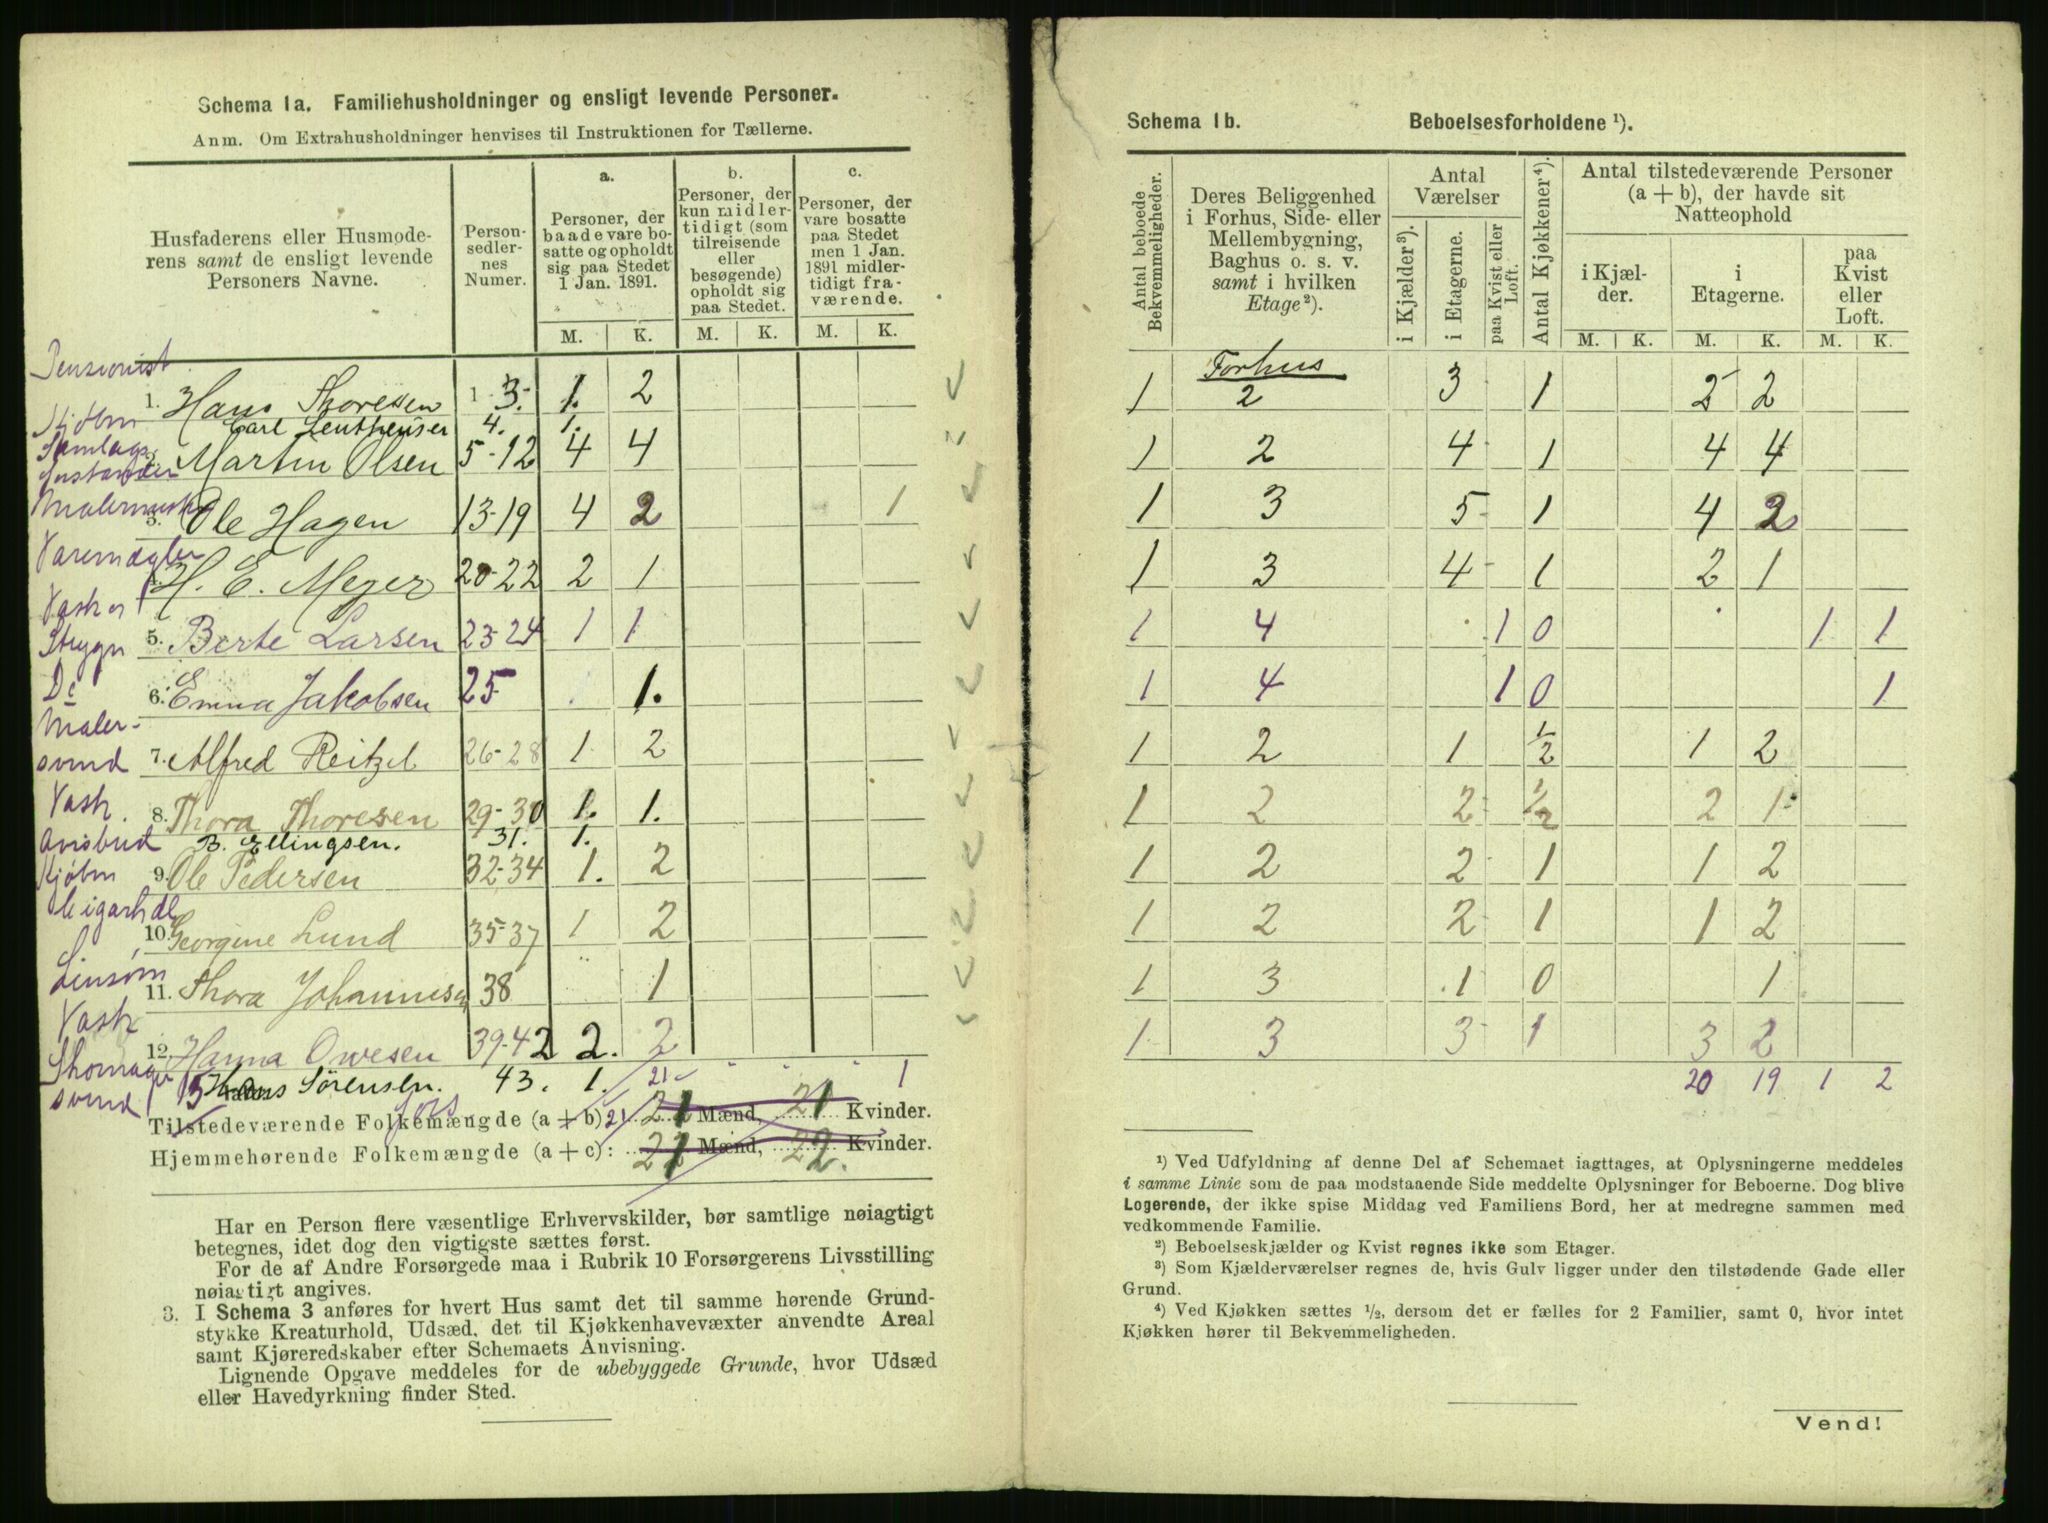 Schema 1a. Familiehusholdninger og ensligt levende Personer.
Anm. Om Extrahusholdninger henvises til Instruktionen for Tællerne.
Husfaderens eller Husmode-
rens samt de ensligt levende
Personers Navne.
Person-
sedler-
nes
Numer.
a.
Personer, der
baade vare bo-
satte og opholdt
sig paa Stedet
1 Jan. 1891.
b.
Personer, der
kun midler-
tidigt (som
tilreisende
eller
besøgende)
opholdt sig
paa Stedet.
c.
Personer, der
vare bosatte
paa Stedet
men 1 Jan.
1891 midler-
tidigt fra-
værende.
M. K. M. K. M. K.
Pensionist
1. Hans Thoresen 1-3. 1. 2
Carl 4. 1.
2. Martin Olsen 5-12 4 4
3. Ole Hagen 13-19 4 2 1
Varemægler
4. H. E. Meyer 20-22 2 1
Vask og
Strygn 5. Berte Larsen 23-24 1 1
Do
6. Emma Jakobsen 25 1.
Maler-
svend 7. Alfred Reitzel 26-28 1 2
Vask
8. Thora Thoresen 29-30 1. 1.
Avisbud B. Ellingsen. 31. 1.
Kjøbm 9. Ole Pedersen 32-34 1. 2
Cigarhdl
10. Georgine Lund 35-37 1 2
Linsøm
11. Thora Johannesen 38 1
Vask
12. Hanna Owesen 39-42 2. 2
Skomager
svend 13 Hans Sørensen. 43. 1. 21 1
Tilstedeværende Folkemængde (a + b) 21 21 Mænd, 21 Kvinder.
Hjemmehørende Folkemængde (a + c): 21 Mænd, 22. Kvinder.
Har en Person flere væsentlige Erhvervskilder, bør samtlige nøiagtigt
betegnes, idet dog den vigtigste sættes først.
For de af Andre Forsørgede maa i Rubrik 10 Forsørgerens Livsstilling
nøiagtigt angives.
3. I Schema 3 anføres for hvert Hus samt det til samme hørende Grund-
stykke Kreaturhold, Udsæd, det til Kjøkkenhavevæxter anvendte Areal
samt Kjøreredskaber efter Schemaets Anvisning.
Lignende Opgave meddeles for de ubebyggede Grunde, hvor Udsæd
eller Havedyrkning finder Sted.
Schema 1b. Beboelsesforholdene ¹).
Antal beboede
Bekvemmeligheder.
Deres Beliggenhed
i Forhus, Side- eller
Mellembygning,
Baghus o. s. v.
samt i hvilken
Etage ²).
Antal
Værelser
i Kjælder ³).
i Etagerne.
paa Kvist eller
Loft.
Antal Kjøkkener ⁴).
Antal tilstedeværende Personer
(a + b), der havde sit
Natteophold
i Kjæl-
der.
i
Etagerne.
paa
Kvist
eller
Loft.
M. K. M. K. M. K.
Forhus
1 2 3 1 2 2
1 2 4 1 4 4
1 3 5 1 4 2
1 3 4 1 2 1
1 4 1 0 1 1
1 4 1 0 1
1 2 1 1/2 1 2
1 2 2 1/2 2 1
1 2 2 1 1 2
1 2 2 1 1 2
1 3 1 0 1
1 3 3 1 3 2
20 19 1 2
¹) Ved Udfyldning af denne Del af Schemaet iagttages, at Oplysningerne meddeles
i samme Linie som de paa modstaaende Side meddelte Oplysninger for Beboerne. Dog blive
Logerende, der ikke spise Middag ved Familiens Bord, her at medregne sammen med
vedkommende Familie.
²) Beboelseskjælder og Kvist regnes ikke som Etager.
³) Som Kjælderværelser regnes de, hvis Gulv ligger under den tilstødende Gade eller
Grund.
⁴) Ved Kjøkken sættes 1/2, dersom det er fælles for 2 Familier, samt 0, hvor intet
Kjøkken hører til Bekvemmeligheden.
Vend!